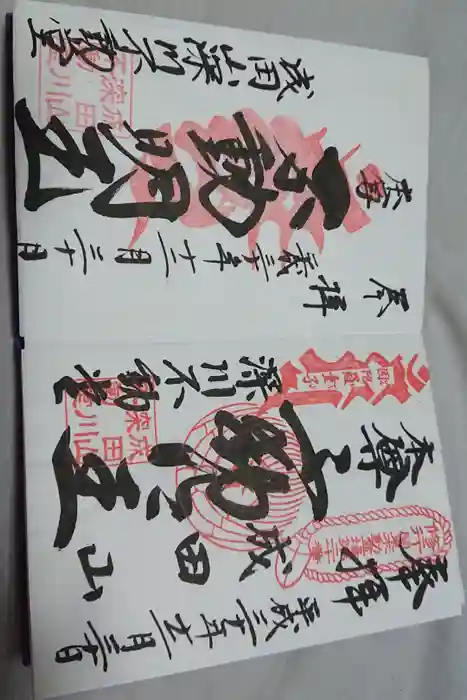 奉拝
平成三十年十二月三十日
本尊
不動明王
成田山深川不動堂
奉拝
平成三十年十二月三十日
本尊
不動明王
成田山
深川不動堂